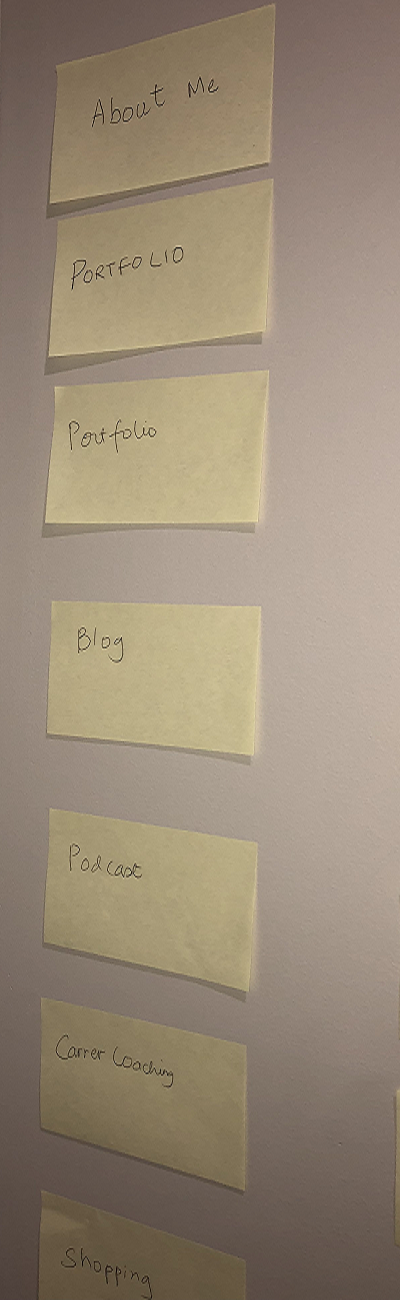 About Me
PORTFOLIO
Portfolio
Blog
Podcast
Carrer Coaching
Shopping